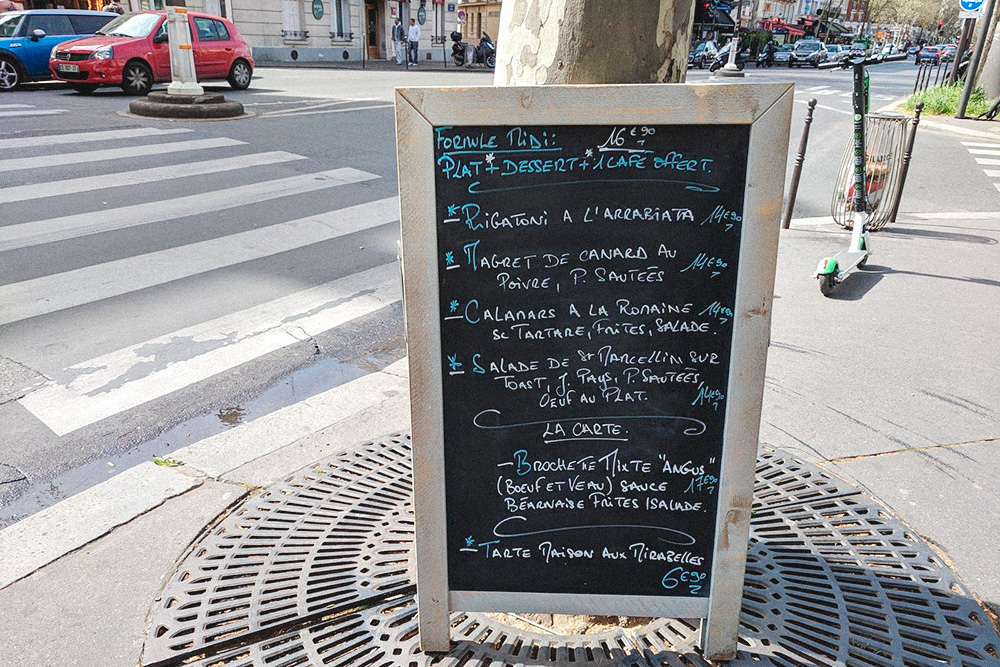 FORMULE MIDI: 16€90
PLAT + DESSERT + 1 CAFÉ OFFERT.
* RIGATONI A L'ARRABIATA 14€90
* MAGRET DE CANARD AU
POIVRE, P. SAUTEÉS 14€90
* CALAMARS A LA ROMAINE 14€90
SC TARTARE, FRITES, SALADE.
* SALADE DE St MARCELLIN SUR
TOAST, J. PAYS, P. SAUTEÉS,
OEUF AU PLAT. 14€90
LA CARTE.
- BROCHETTE MIXTE "ANGUS"
(BOEUF ET VEAU) SAUCE 17€90
BÉARNAISE FRITES / SALADE.
* TARTE MAISON AUX MIRABELLES
6€90